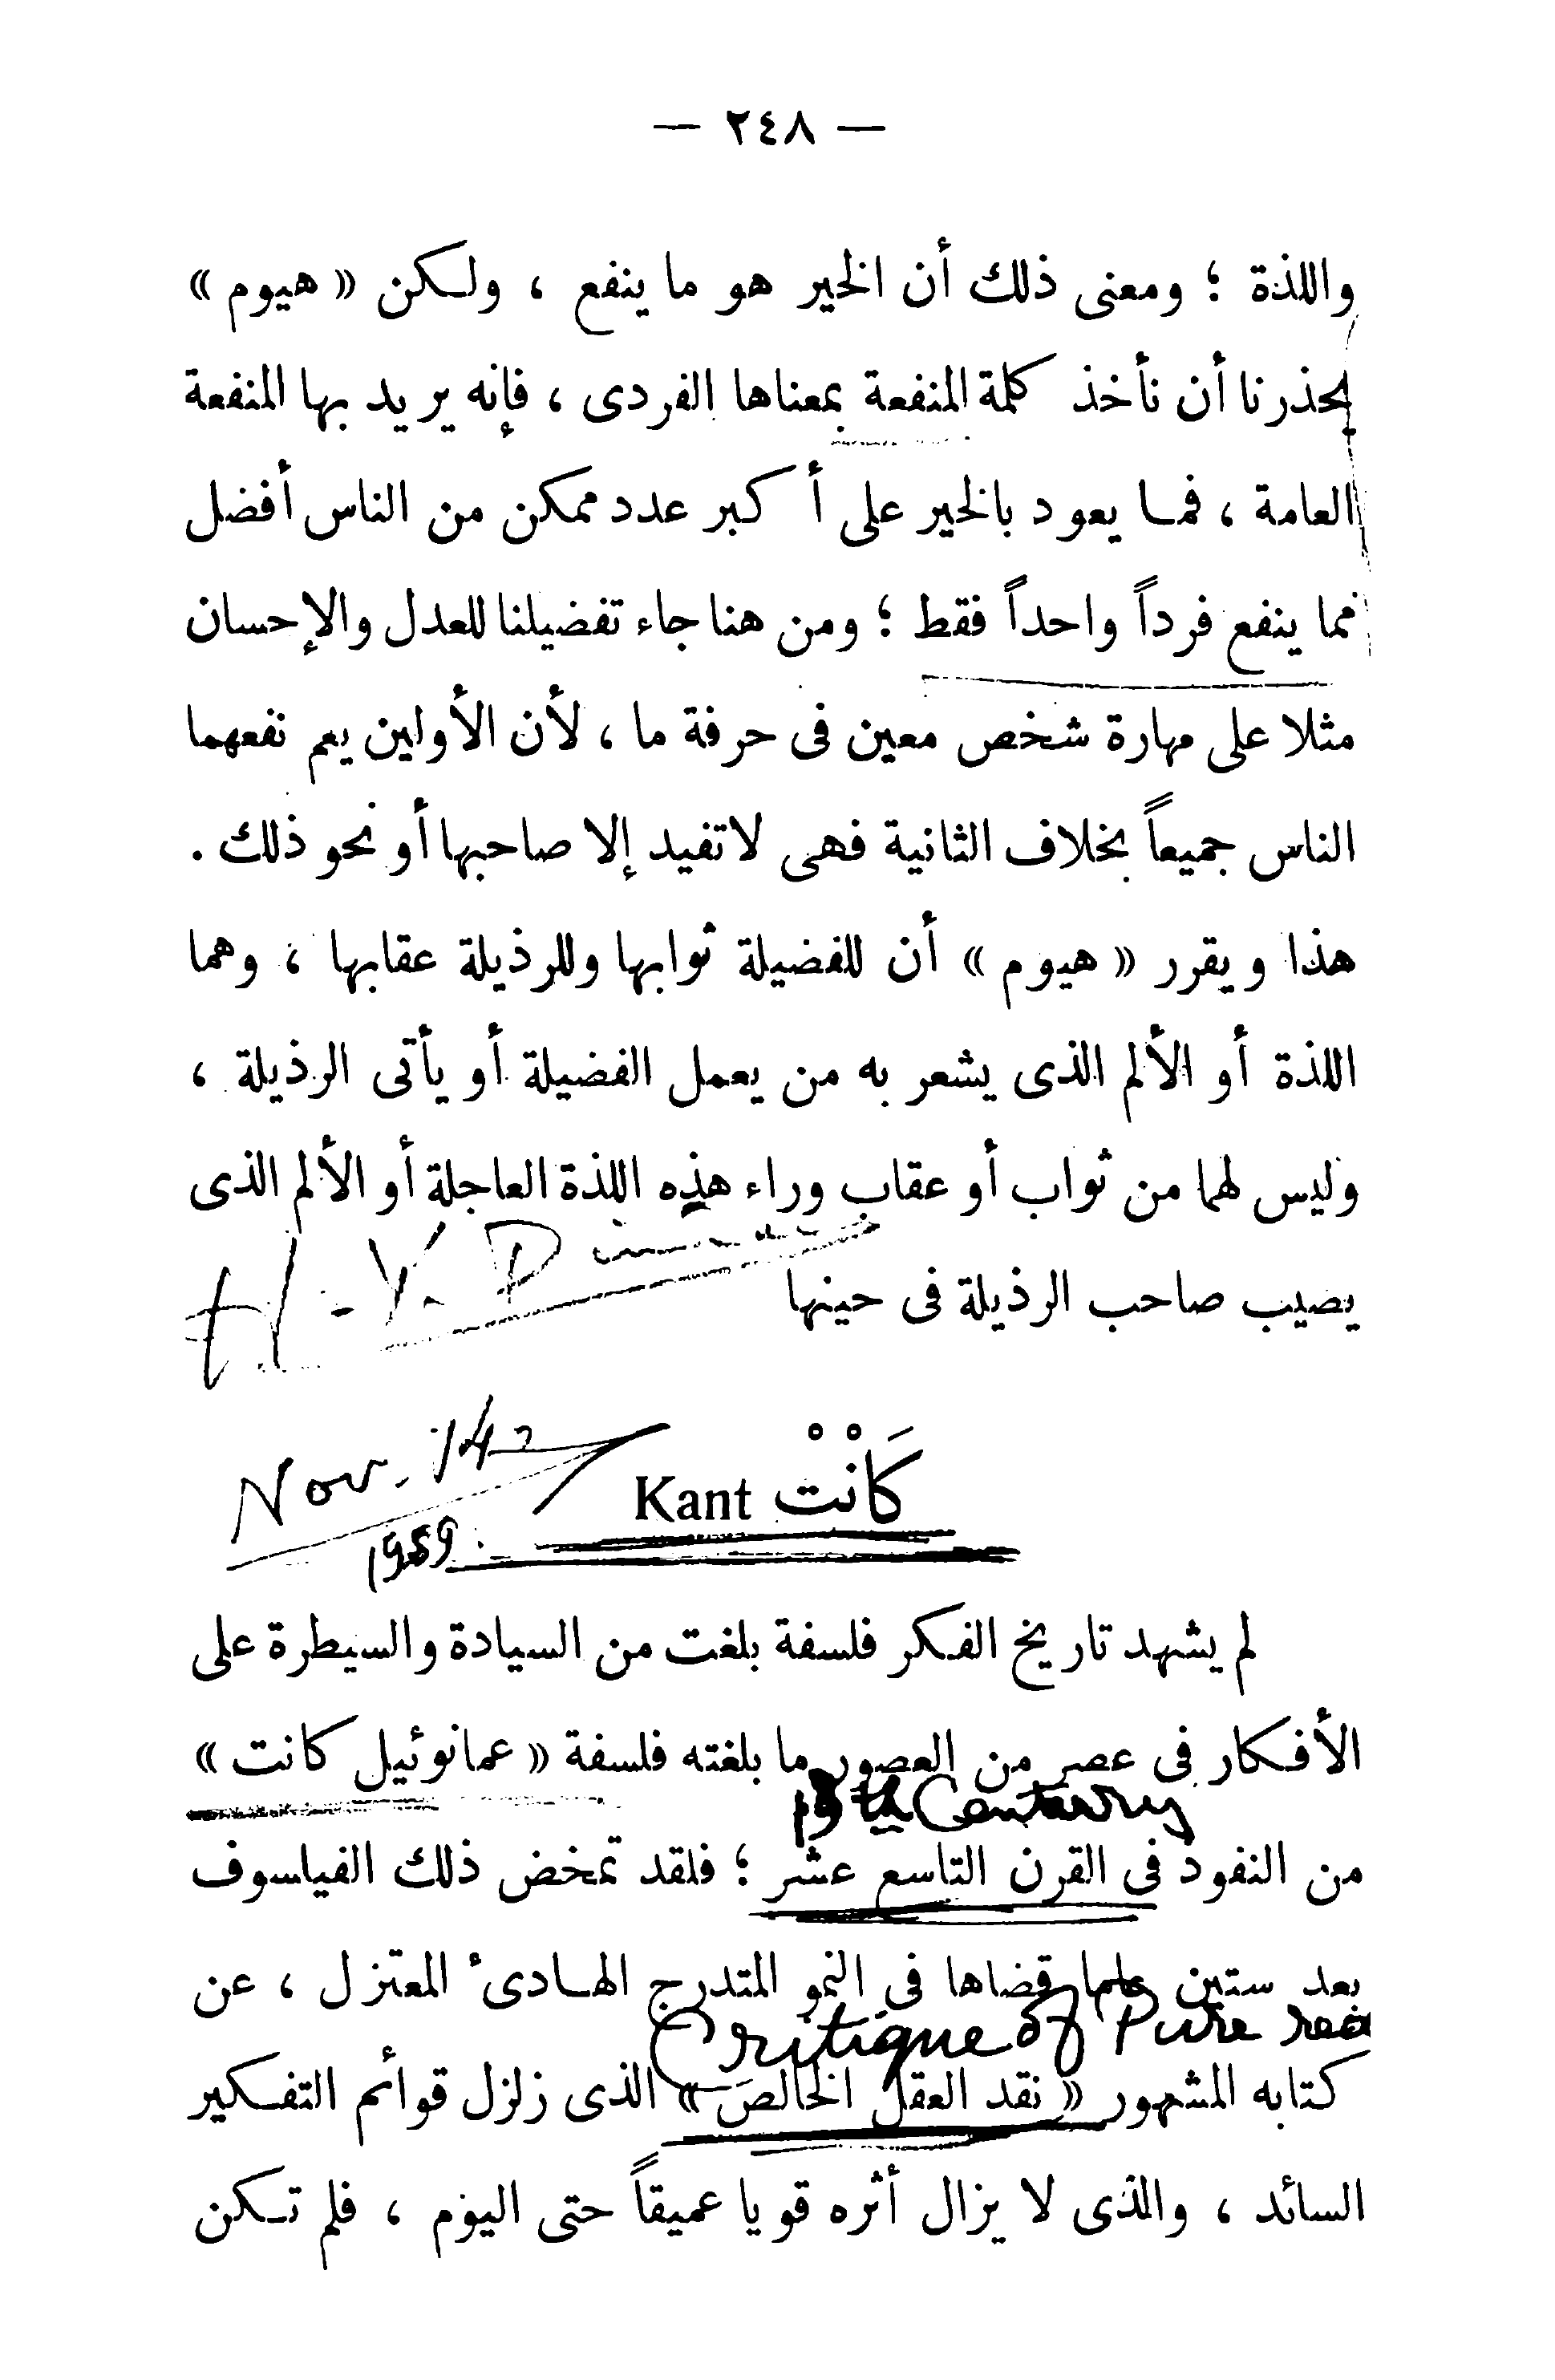 — ٢٤٨ —
واللذة ؛ ومعنى ذلك أن الخير هو ما ينفع ، ولكن « هيوم »
يحذرنا أن نأخذ كلمة المنفعة بمعناها الفردى ، فإنه يريد بها المنفعة
العامة ، فما يعود بالخير على أكبر عدد ممكن من الناس أفضل
مما ينفع فرداً واحداً فقط ؛ ومن هنا جاء تفضيلنا للعدل والإحسان
مثلا على مهارة شخص معين فى حرفة ما ، لأن الأولين يعم نفعهما
الناس جميعاً بخلاف الثانية فهى لا تفيد إلا صاحبها أو نحو ذلك .
هذا ويقرر « هيوم » أن للفضيلة ثوابها وللرذيلة عقابها ، وهما
اللذة أو الألم الذى يشعر به من يعمل الفضيلة أو يأتى الرذيلة ،
وليس لهما من ثواب أو عقاب وراء هذه اللذة العاجلة أو الألم الذى
يصيب صاحب الرذيلة فى حينها
Nov. 14
1959.
كَانْتْ Kant
لم يشهد تاريخ الفكر فلسفة بلغت من السيادة والسيطرة على
الأفكار فى عصر من العصور ما بلغته فلسفة « عمانوئيل كانت »
19th Century
من النفوذ فى القرن التاسع عشر ؛ فلقد تمخض ذلك الفيلسوف
بعد ستين عاما قضاها فى النمو المتدرج الهادىء المعتزل ، عن
Critique of Pure rea
كتابه المشهور « نقد العقل الخالص » الذى زلزل قوائم التفكير
السائد ، والذى لا يزال أثره قويا عميقاً حتى اليوم ، فلم تكن